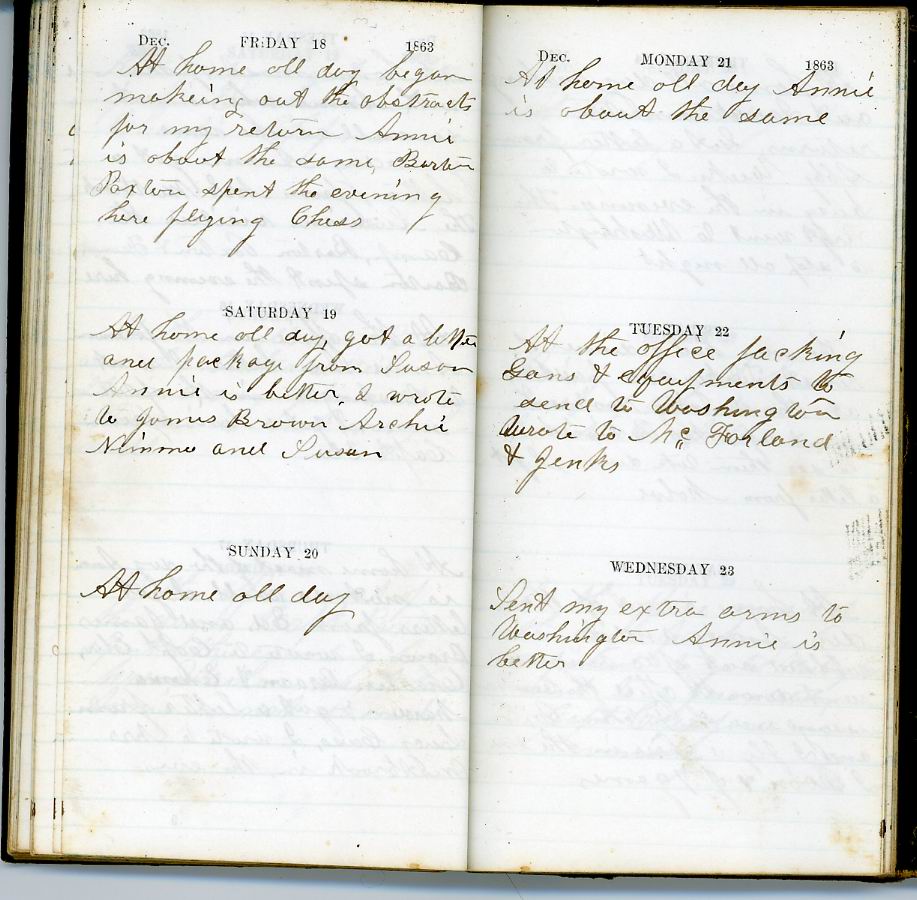 DEC. FRIDAY 18 1863
At home all day began
makeing out the abstracts
for my return Annie
is about the same, Barton
Paxton spent the evening
here plying Chess
SATURDAY 19
At home all day, got a letter
and package from Susan
Annie is better, I wrote
to James Brown Archie
Nimmo and Susan
SUNDAY 20
At home all day
DEC. MONDAY 21 1863
At home all day Annie
is about the same
TUESDAY 22
At the office packing
Guns & equipments to
send to Washington
Wrote to Mc Farland
& Jenks
WEDNESDAY 23
Sent my extra arms to
Washington Annie is
better